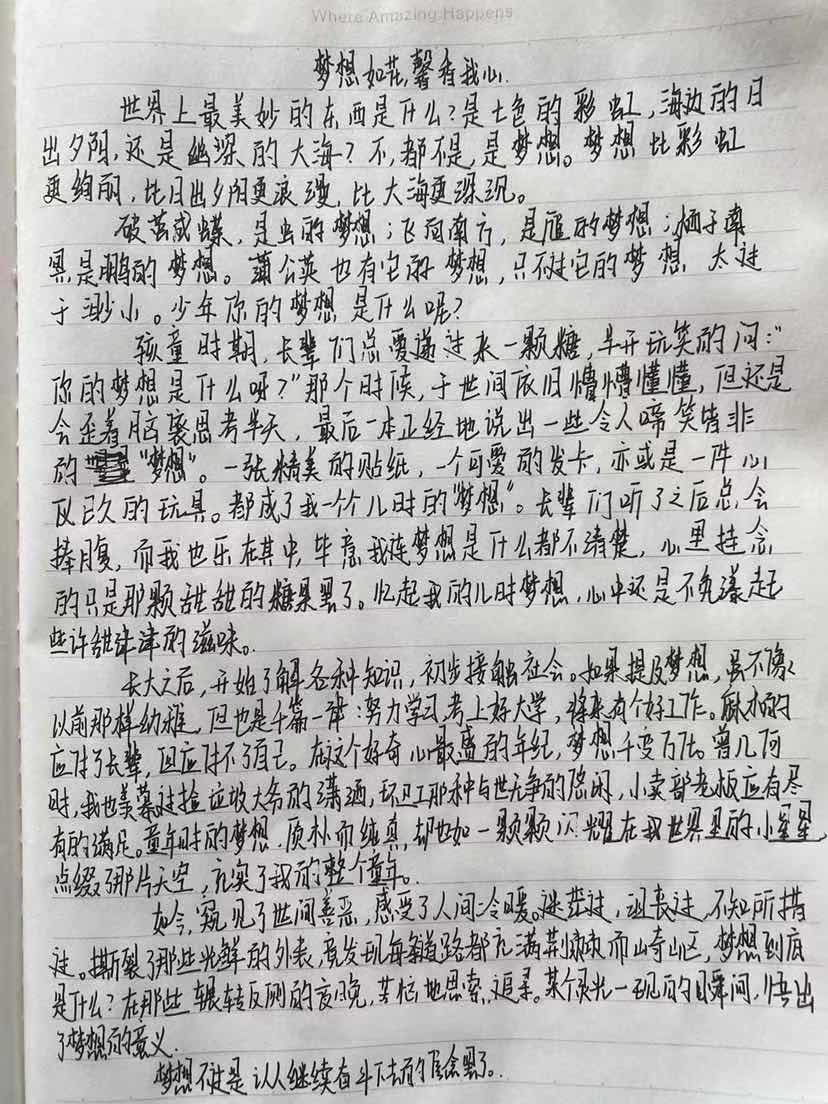 Where Amazing Happens
梦想如花,馨香我心.
世界上最美妙的东西是什么?是七色的彩虹,海边的日
出夕阳,还是幽深的大海?不,都不是,是梦想。梦想比彩虹
更绚丽,比日出夕阳更浪漫,比大海更深沉。
破茧成蝶,是虫的梦想;飞向南方,是雁的梦想;栖于南
冥是鹏的梦想。蒲公英也有它的梦想,只不过它的梦想太过
于渺小。少年你的梦想是什么呢?
孩童时期,长辈们总爱递过来一颗糖,半开玩笑的问:"
你的梦想是什么呀?"那个时候,于世间依旧懵懵懂懂,但还是
会歪着脑袋思考半天,最后一本正经地说出一些令人啼笑皆非
的"梦想"。一张精美的贴纸,一个可爱的发卡,亦或是一件心
仪已久的玩具。都成了我一个个儿时的"梦想"。长辈们听了之后总会
捧腹,而我也乐在其中,毕竟我连梦想是什么都不清楚,心里挂念
的只是那颗甜甜的糖果罢了。忆起我的儿时梦想,心中还是不免漾起
些许甜津津的滋味。
长大之后,开始了解各种知识,初步接触社会。如果提及梦想,虽不像
以前那样幼稚,但也是千篇一律:努力学习,考上好大学,将来有个好工作。麻木的
应付了长辈,但应付不了自己。在这个好奇心最盛的年纪,梦想千变万化。曾几何
时,我也羡慕过捡垃圾大爷的潇洒,环卫工那种与世无争的悠闲,小卖部老板应有尽
有的满足。童年时的梦想,质朴而纯真,却也如一颗颗闪耀在我世界里的小星星,
点缀了那片天空,充实了我的整个童年。
如今,窥见了世间善恶,感受了人间冷暖。迷茫过,沮丧过,不知所措
过。撕裂了那些光鲜的外表,竟发现每条道路都充满荆棘而崎岖,梦想到底
是什么?在那些辗转反侧的夜晚,苦恼地思索,追寻。某个灵光一现的瞬间,悟出
了梦想的意义.
梦想不过是让人继续奋斗下去的信念罢了。